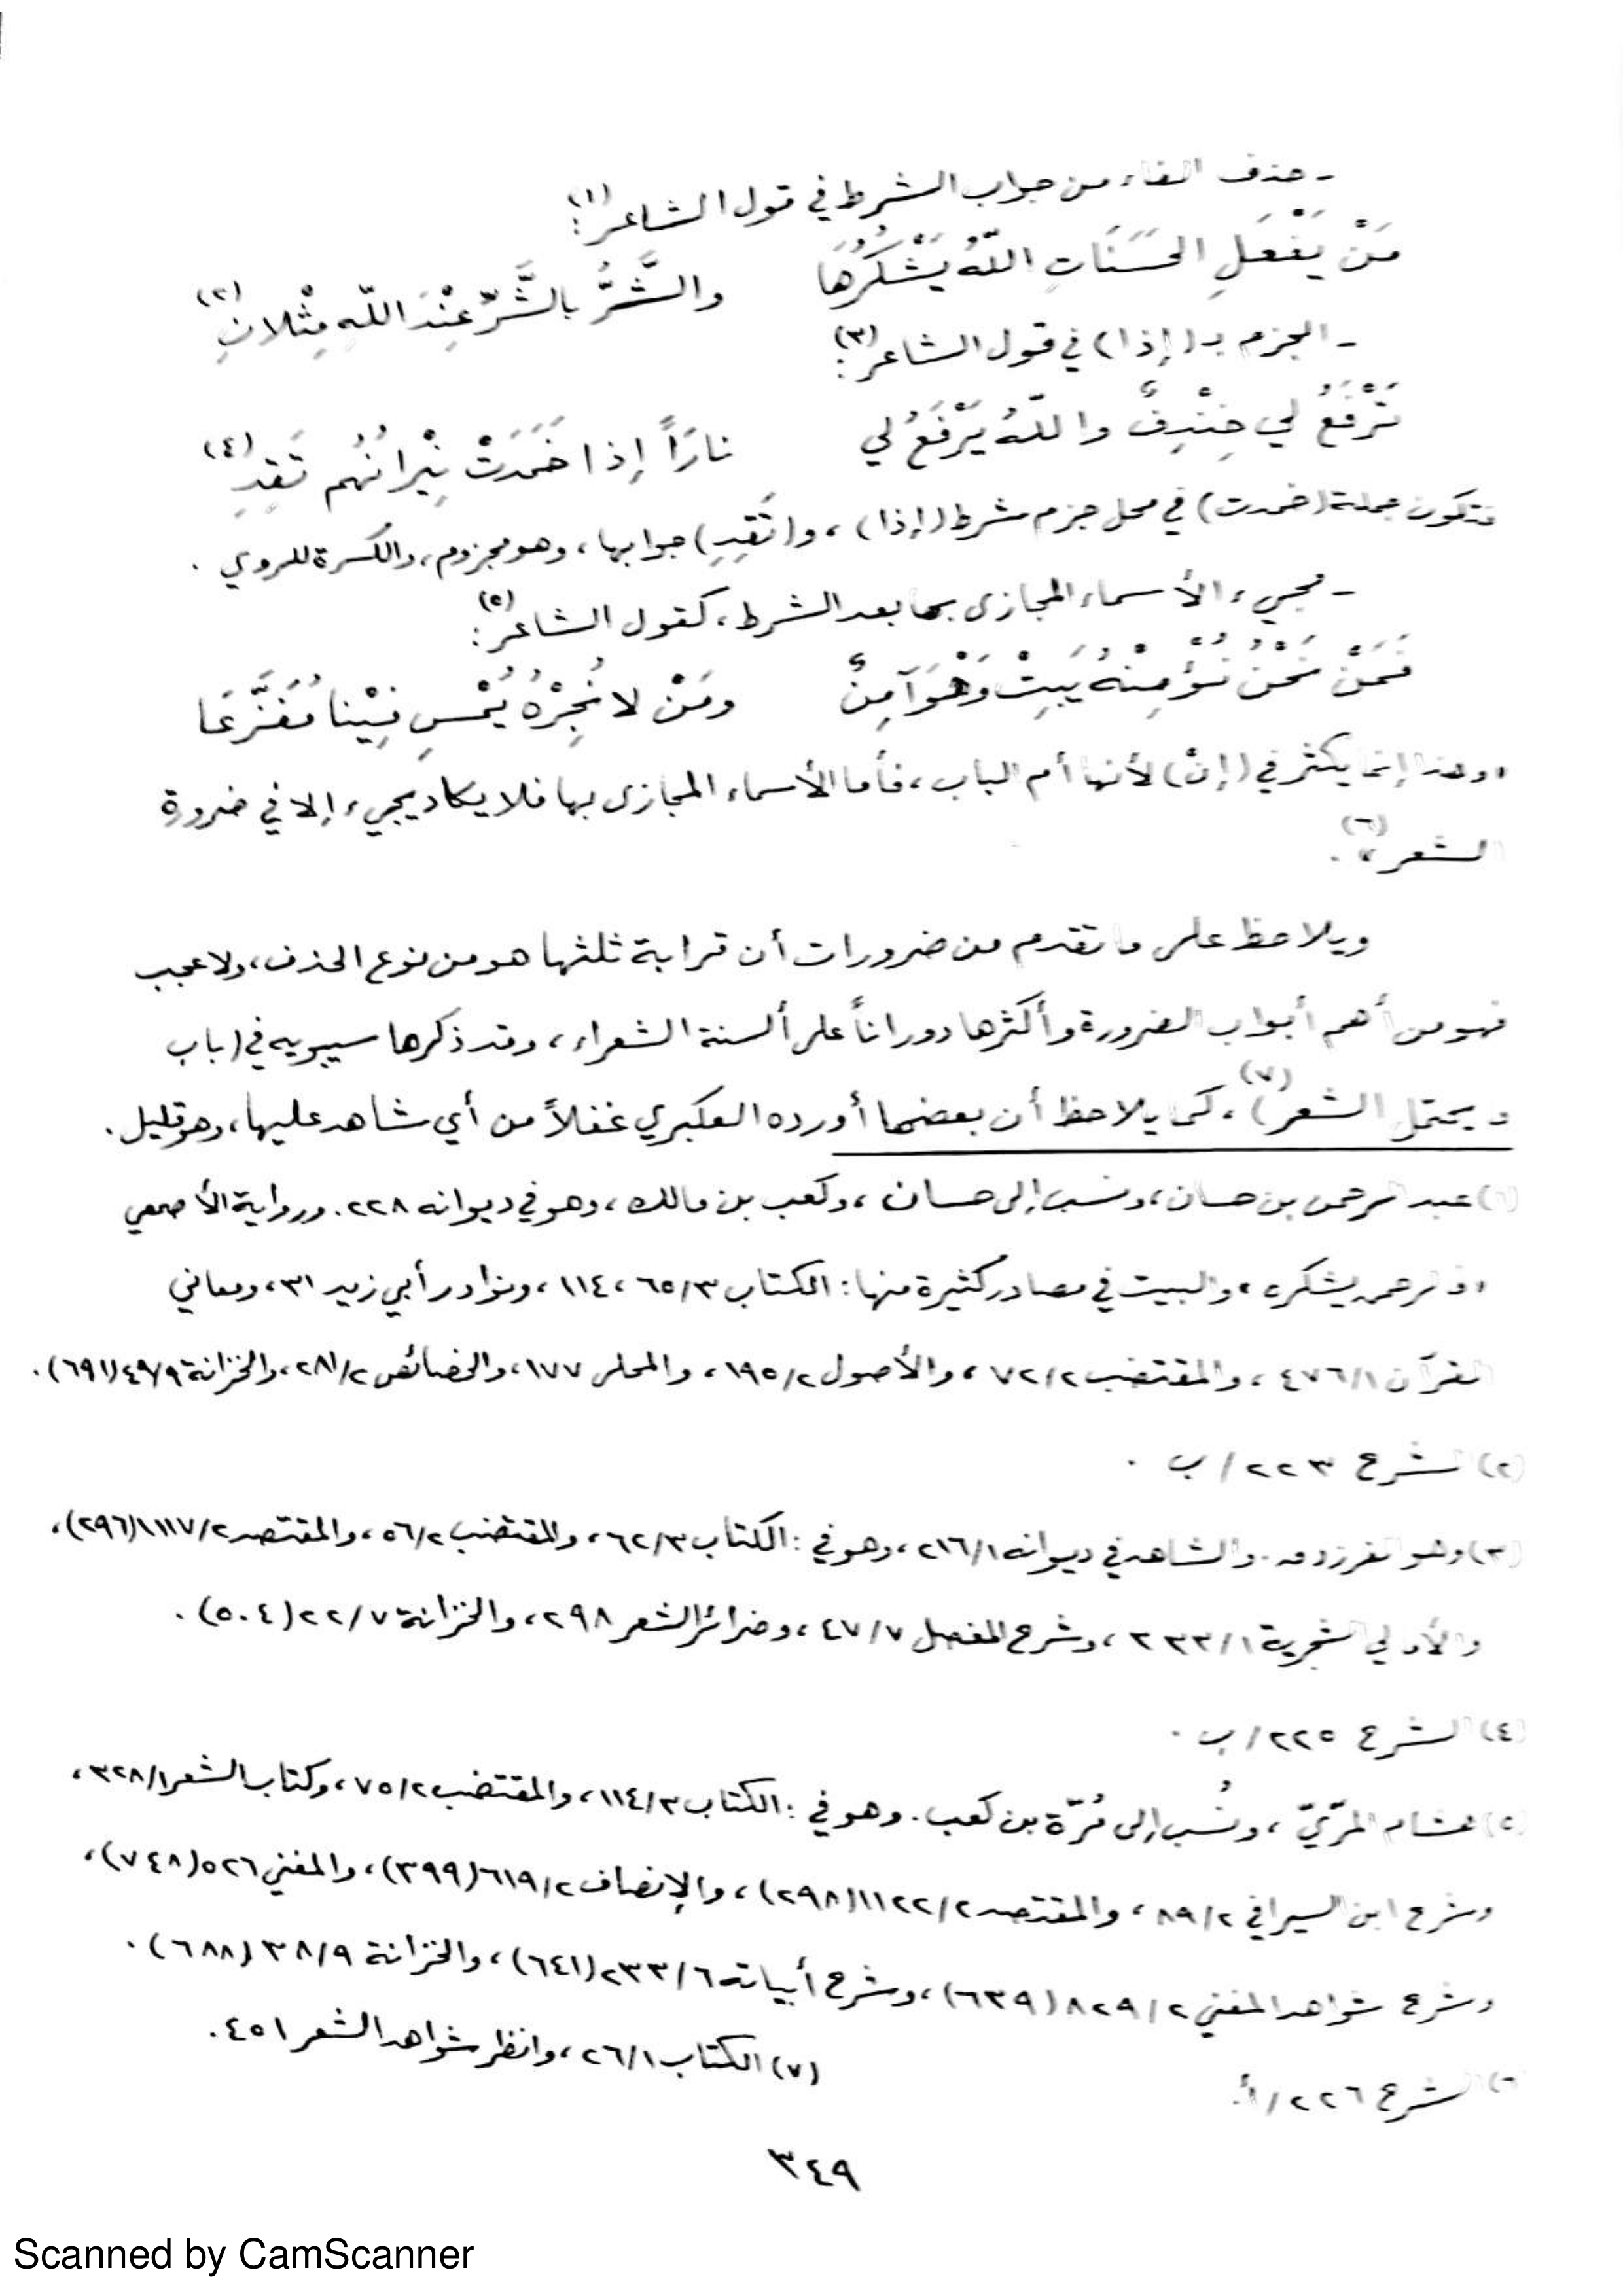 - حذف الفاء من جواب الشرط في قول الشاعر(١):
مَنْ يَفْعَلِ الحَسَنَاتِ اللّهُ يَشْكُرُهَا والشَّرُّ بالشَّرِّ عِنْدَ اللّهِ مِثْلانِ(٢)
- الجزم بـ (إذا) في قول الشاعر(٣):
تَرْفَعُ لي خِنْدِفٌ واللّهُ يَرْفَعُ لي نارَاً إذا خَمَدَتْ نِيْرانُهُم تَقِدِ(٤)
فتكون جملة (خمدت) في محل جزم شرط (إذا)، و(تَقِدِ) جوابها، وهو مجزوم، والكسرة للروي.
- مجيء الأسماء المجازى بها بعد الشرط، كقول الشاعر(٥):
فَمَنْ نَحْنُ نُؤْمِنْهُ يَبِتْ وَهْوَ آمِنٌ ومَنْ لا نُجِرْهُ يُمْسِ مِنّا مُفَزَّعَا
"وهذا إنما يكثر في (إنْ) لأنها أم الباب، فأما الأسماء المجازى بها فلا يكاد يجيء إلا في ضرورة
الشعر"(٦).
ويلاحظ على ما تقدم من ضرورات أن قرابة ثلثها هو من نوع الحذف، ولا عجب
فهو من أهم أبواب الضرورة وأكثرها دوراناً على ألسنة الشعراء، وقد ذكرها سيبويه في (باب
ما يحتمل الشعر)(٧)، كما يلاحظ أن بعضها أورده العكبري غفلاً من أي شاهد عليها، وهو قليل.
(١) عبد الرحمن بن حسان، ونسب إلى حسان، وكعب بن مالك، وهو في ديوانه ٢٢٨. ورواية الأصمعي
فالرحمن يشكره، والبيت في مصادر كثيرة منها: الكتاب ٦٥/٣، ١١٤، ونوادر أبي زيد ٣١، ومعاني
القرآن ٤٧٦/١، والمقتضب ٧٢/٢، والأصول ١٩٥/٢، والمحلى ١٧٧، والخصائص ٢٨١/٢، والخزانة ٤٩/٩ (٦٩١).
(٢) الشرح ٢٢٣ / ب.
(٣) وهو الفرزدق. والشاهد في ديوانه ٢١٦/١، وهو في: الكتاب ٦٢/٣، والمقتضب ٥٦/٢، والمقتصد ١١١٧/٢ (٢٩٦)،
والأمالي الشجرية ٣٣٣/١، وشرح المفصل ٤٧/٧، وضرائر الشعر ٢٩٨، والخزانة ٢٢/٧ (٥٠٤).
(٤) الشرح ٢٢٥ / ب.
(٥) هشام المرّيّ، ونُسب إلى مُرّة بن كعب. وهو في: الكتاب ١١٤/٣، والمقتضب ٧٥/٢، وكتاب الشعر ٣٢٨/١،
وشرح ابن السيرافي ٨٩/٢، والمقتصد ١١٢٢/٢ (٢٩٨)، والإنصاف ٦١٩/٢ (٣٩٩)، والمغني ٥٢٦ (٧٤٨)،
وشرح شواهد المغني ٨٢٩/٢ (٦٣٩)، وشرح أبياته ٢٣٣/٦ (٦٤١)، والخزانة ٣٨/٩ (٦٨٨).
(٦) الشرح ٢٢٦ / أ. (٧) الكتاب ٢٦/١، وانظر شواهد الشعر ٤٥١.
٣٤٩
Scanned by CamScanner